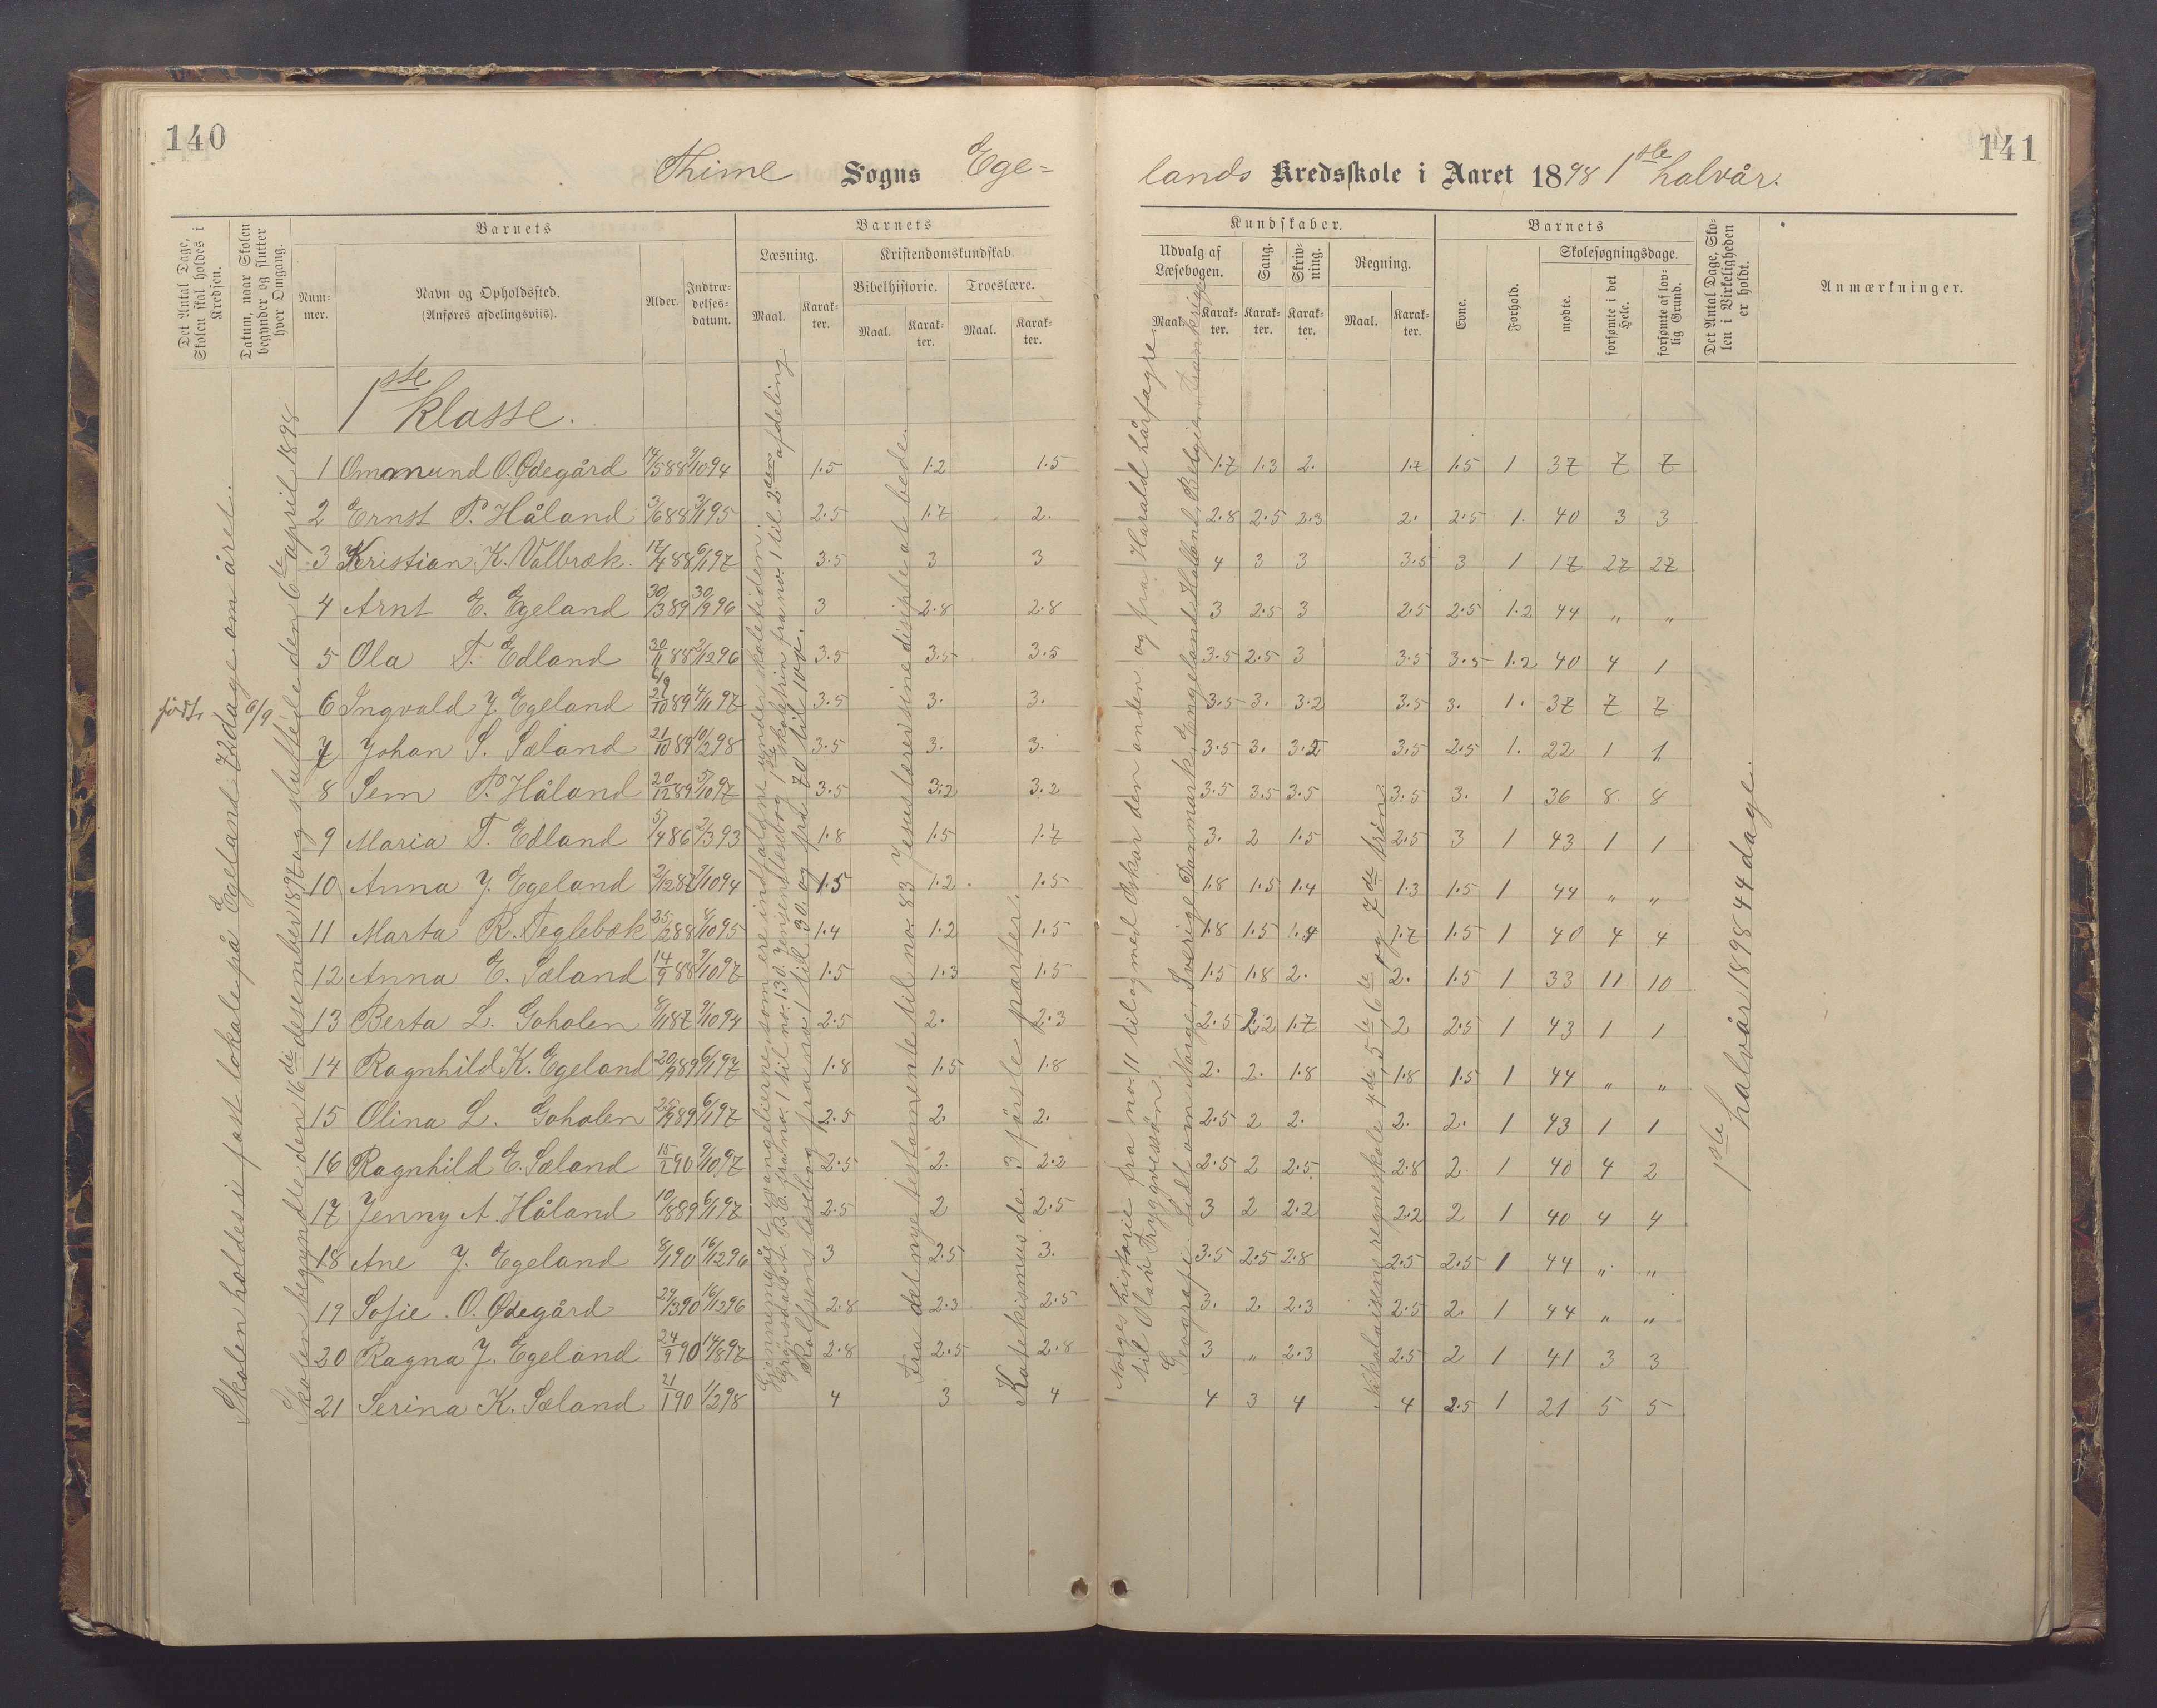 140
141
Thime Sogns Ege=
lands Kredsskole i Aaret 1898 1ste halvår.
Det Antal Dage, Skolen skal holdes i Kredsen.
Datum, naar Skolen begynder og slutter hver Omgang.
Barnets
Num-mer.
Navn og Opholdssted.
(Anføres afdelingsviis).
Alder.
Indtræ-delses-datum.
Barnets
Læsning.
Maal.
Karak-ter.
Kristendomskundskab.
Bibelhistorie.
Maal.
Karak-ter.
Troeslære.
Maal.
Karak-ter.
Kundskaber.
Udvalg af Læsebogen.
Maal.
Karak-ter.
Sang.
Karak-ter.
Skriv-ning.
Karak-ter.
Regning.
Maal.
Karak-ter.
Barnets
Evne.
Forhold.
Skolesøgningsdage.
mødte.
forsømte i det Hele.
forsømte af lov-lig Grund.
Det Antal Dage, Sko-len i Virkeligheden er holdt.
Anmærkninger.
Skolen holdes i fast lokale på Egeland 72 dage om året.
Skolen begyndte den 16de desember 1897 og sluttede den 6te april 1898
1ste klasse.
1 Ommund O. Ødegård 14/5 88 9/10 94 1.5 1.2 1.5 1.7 1.3 2. 1.7 1.5 1 37 7 7
2 Ernst P. Håland 3/6 88 3/1 95 2.5 1.7 2. 2.8 2.5 2.3 2. 2.5 1. 40 3 3
3 Kristian K. Valbræk. 17/4 88 6/1 97 3.5 3 3 4 3 3 3.5 3 1 17 27 27
4 Arnt E. Egeland 30/3 89 30/9 96 3 2.8 2.8 3 2.5 3 2.5 2.5 1.2 44 " "
5 Ola T. Edland 30/11 88 2/12 96 3.5 3.5 3.5 3.5 2.5 3 3.5 3.5 1.2 40 4 1
født 6/9
6/9
6 Ingvald J. Egeland 21/10 89 4/11 97 3.5 3. 3. 3.5 3. 3.2 3.5 3. 1. 37 7 7
7 Johan S. Sæland 21/10 89 10/2 98 3.5 3. 3. 3.5 3. 3.2 3.5 2.5 1. 22 1 1
8 Sem P. Håland 20/12 89 5/10 97 3.5 3.2 3.2 3.5 3.5 3.5 3.5 3. 1 36 8 8
9 Maria T. Edland 5/4 86 2/3 93 1.8 1.5 1.7 3. 2 1.5 2.5 3 1 43 1 1
10 Anna J. Egeland 3/12 87 9/10 94 1.5 1.2 1.5 1.8 1.5 1.4 1.3 1.5 1 44 " "
11 Marta R. Teglebæk 25/2 88 8/10 95 1.4 1.2 1.5 1.8 1.5 1.4 1.7 1.5 1 40 4 4
12 Anna E. Sæland 14/9 88 9/10 97 1.5 1.3 1.5 1.5 1.8 2. 2. 1.5 1 33 11 10
13 Berta L. Goholen 8/1 87 9/10 94 2.5 2. 2.3 2.5 2.2 1.7 2 2.5 1 43 1 1
14 Ragnhild K. Egeland 20/9 89 6/1 97 1.8 1.5 1.8 2. 2. 1.8 1.8 1.5 1 44 " "
15 Olina L. Goholen 25/9 89 6/1 97 2.5 2. 2. 2.5 2 2. 2. 2. 1 43 1 1
16 Ragnhild E. Sæland 15/2 90 9/10 97 2.5 2. 2.2 2.5 2 2.5 2.8 2 1 40 4 2
17 Jenny A Håland 10/8 89 6/1 97 2.5 2 2.5 3 2 2.2 2.2 2 1 40 4 4
18 Ane J. Egeland 8/1 90 16/12 96 3 2.5 3. 3.5 2.5 2.8 2.5 2.5 1 44 " "
19 Sofie. O. Ødegård 29/3 90 16/12 96 2.8 2.3 2.5 3. 2 2.3 2.5 2. 1 44 " "
20 Ragna J. Egeland 24/9 90 14/8 97 2.8 2.5 2.8 3 " 2.3 2.5 2 1 41 3 3
21 Serina K. Sæland 21/1 90 1/2 98 4 3 4 4 3 4 4 2.5 1 21 5 5
Gjennemgået evangelierne som ere indfaldne under skoletiden i
A. B. C. fra no. 1 til no. 130. Jensens læsebog 1ste skoletrin fra no. 1 til 2den afdeling.
Rolfsens læsebog fra no. 1 til 30. og fra 70 til 100.
Fra det nye testamente til no. 83 Jesus lærer sine disiple at bede.
Katekismus de 3 første parter.
Norges historie fra no. 11 til og med Oskar den anden. og fra Harald hårfagre til Olav Tryggvessøn.
Geografi. Lidt om Norge, Sverige, Danmark, Engeland, Holland, Belgien, Frankrige
Nikolaisens regneskole 4de, 5te, 6te og 7de trin.
1ste halvår 1898 44 dage.